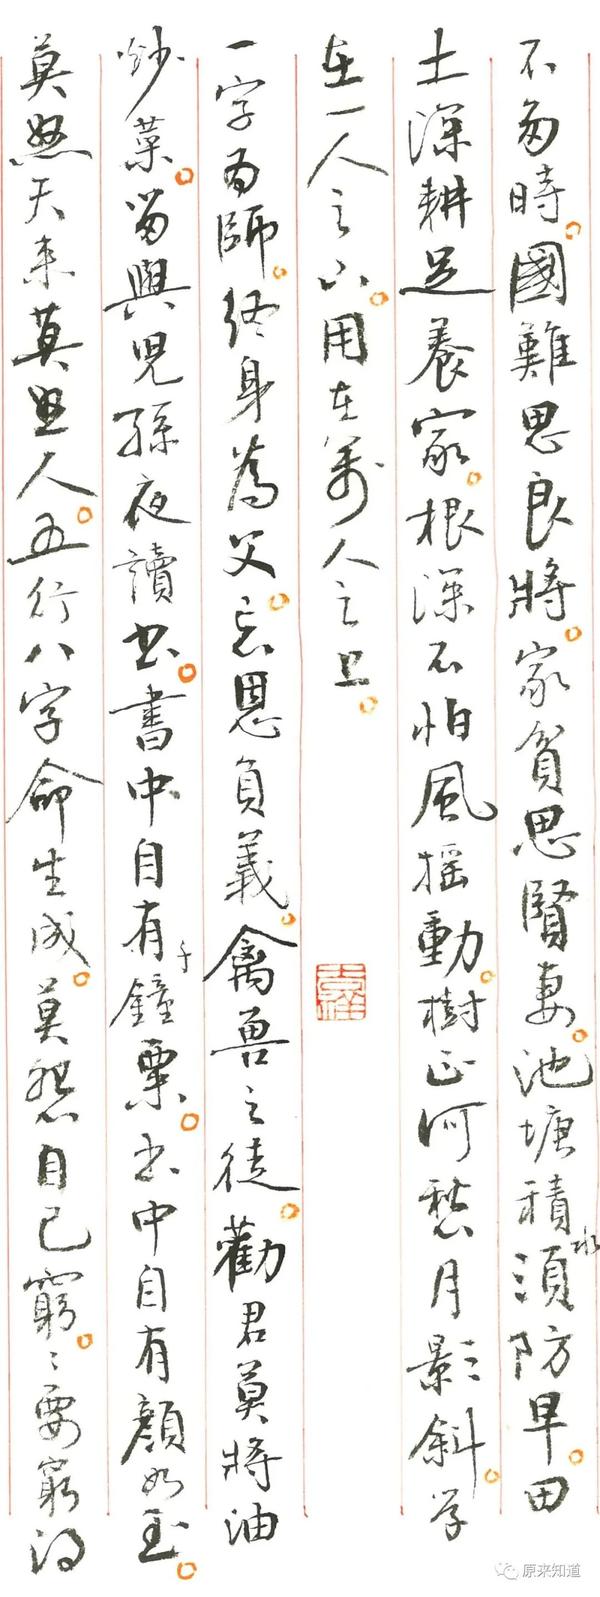 不多時。國難思良將。家貧思賢妻。池塘積水須防旱。田
土深耕足養家。根深不怕風搖動。樹正何愁月影斜。学
在一人之下。用在萬人之上。
一字為師。終身為父。忘恩負義。禽兽之徒。勸君莫將油
炒菜。留與兒孫夜讀书。書中自有千鐘粟。书中自有顏如玉。
莫怨天來莫怨人。五行八字命生成。莫怨自己窮。〻要窮得
原来知道